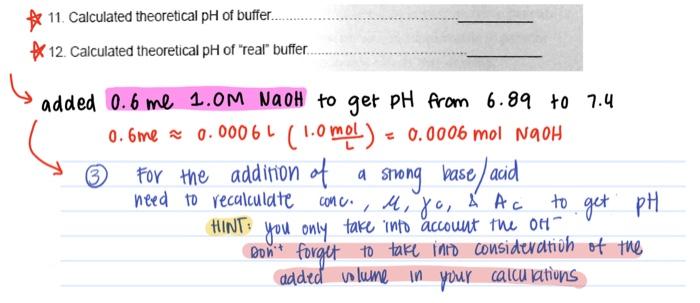 ☆ 11. Calculated theoretical pH of buffer............................................. ____________
☆ 12. Calculated theoretical pH of "real" buffer............................................. ____________
added 0.6 ml 1.0M NaOH to get pH from 6.89 to 7.4
0.6ml ≈ 0.0006 L (1.0 mol/L) = 0.0006 mol NaOH
③ For the addition of a strong base/acid
need to recalculate conc., μ, γc, & Ac to get pH
HINT: you only take into account the OH⁻
Don't forget to take into consideration of the
added volume in your calculations